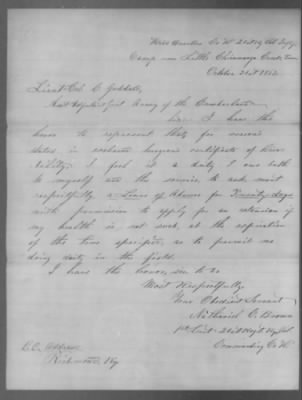 Head Quarters Co "H" 21st Ky Vol Infty
Camp near Little Chicamauga Creek Tenn
October 21st 1863
Lieut Col C. Goddard
Asst Adjutant Genl Army of the Cumberland
Sir I have the
honor to represent that for reasons
stated in enclosed Surgeons certificate of Disa-
bility. I feel it a duty I owe both
to myself and the service, to ask most
respectfully a Leave of Absence for Twenty days
with permission to apply for an extension if
my health is not such, at the expiration
of the time specified, as to permit me
doing duty in the field.
I have the honor, sir to be
Most Respectfully
Your Obedient Servant
Nathaniel C. Brown
1st Lieut 21st Regt Ky Vol
Commanding Co "H"
P.O. Address
Richmond Ky